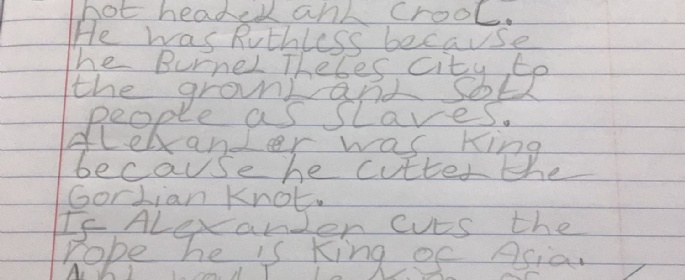 hot headed and crool.
He was Ruthless because
he Burned Thebes City to
the ground and sold
people as slaves.
Alexander was King
because he cutted the
Gordian Knot.
If Alexander cuts the
Rope he is King of Asia.